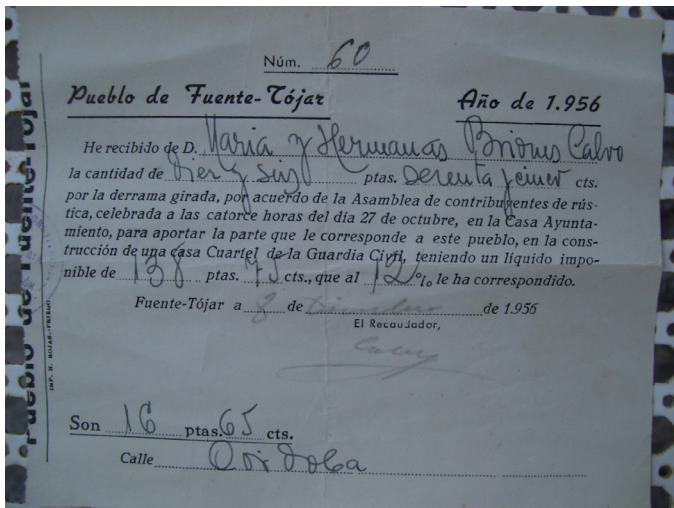 Núm. 60
Pueblo de Fuente-Tójar Año de 1.956
He recibido de D. Maria y Hermanas Briones Calvo
la cantidad de Diez y seis ptas. sesenta y cinco cts.
por la derrama girada, por acuerdo de la Asamblea de contribuyentes de rús-
tica, celebrada a las catorce horas del dia 27 de octubre, en la Casa Ayunta-
miento, para aportar la parte que le corresponde a este pueblo, en la cons-
trucción de una casa Cuartel de la Guardia Civil, teniendo un líquido impo-
nible de 138 ptas. 75 cts., que al 12 % le ha correspondido.
Fuente-Tójar a 8 de Diciembre de 1.956
El Recaudador,
Son 16 ptas. 65 cts.
Calle Córdoba
Pueblo de Fuente-Tójar
IMP. H. ROJAS.-PRIEGO